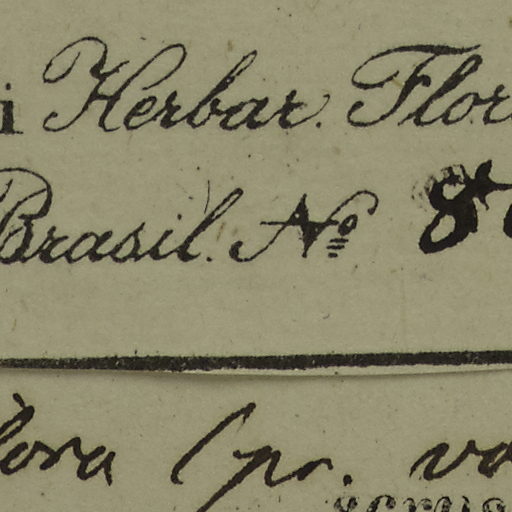 i Herbar. Flor
Brasil. No 8
lora (pr. va